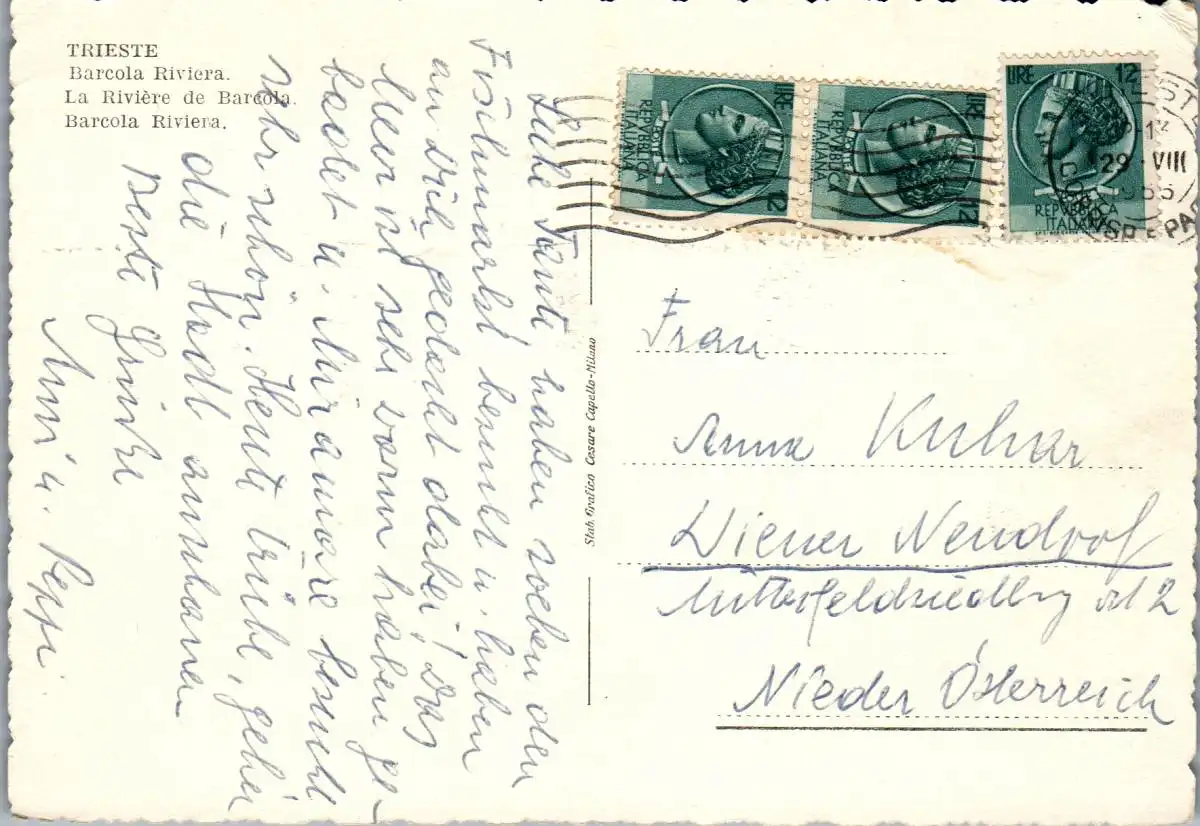 TRIESTE
Barcola Riviera.
La Rivière de Barcola.
Barcola Riviera.
Liebe Tante haben soeben den
Fischmarkt besucht u. haben
an dich gedacht dabei! Das
Meer ist sehr warm haben ge-
badet u. Miramare besucht
sehr schön. Heute trübe, gehen
die Stadt anschauen
Beste Grüße
Mimi u. Peppi.
Stab. Grafico Cesare Capello-Milano
LIRE 12
REPVBBLICA
ITALIANA
LIRE 12
REPVBBLICA
ITALIANA
LIRE 12
REPVBBLICA
ITALIANA
29 VIII
Frau
Anna Kuhar
Wiener Neudrof
Mitterfeldsiedlg 12
Nieder Österreich